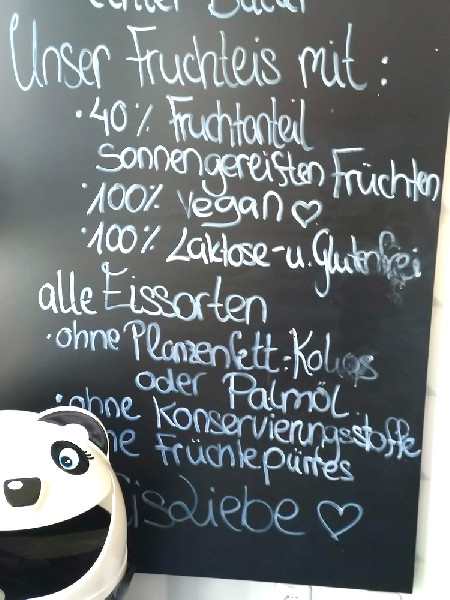 Unser Fruchteis mit:
• 40% Fruchtanteil
sonnengereiften Früchten
• 100% vegan ♡
• 100% Laktose-u. Glutenfrei
alle Eissorten
• ohne Planzenfett: Kokos
oder Palmöl
• ohne Konservierungsstoffe
Früchtepürres
EisLiebe ♡